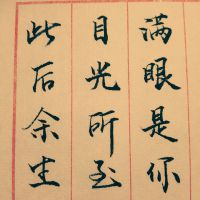 此后余生
目光所至
满眼是你